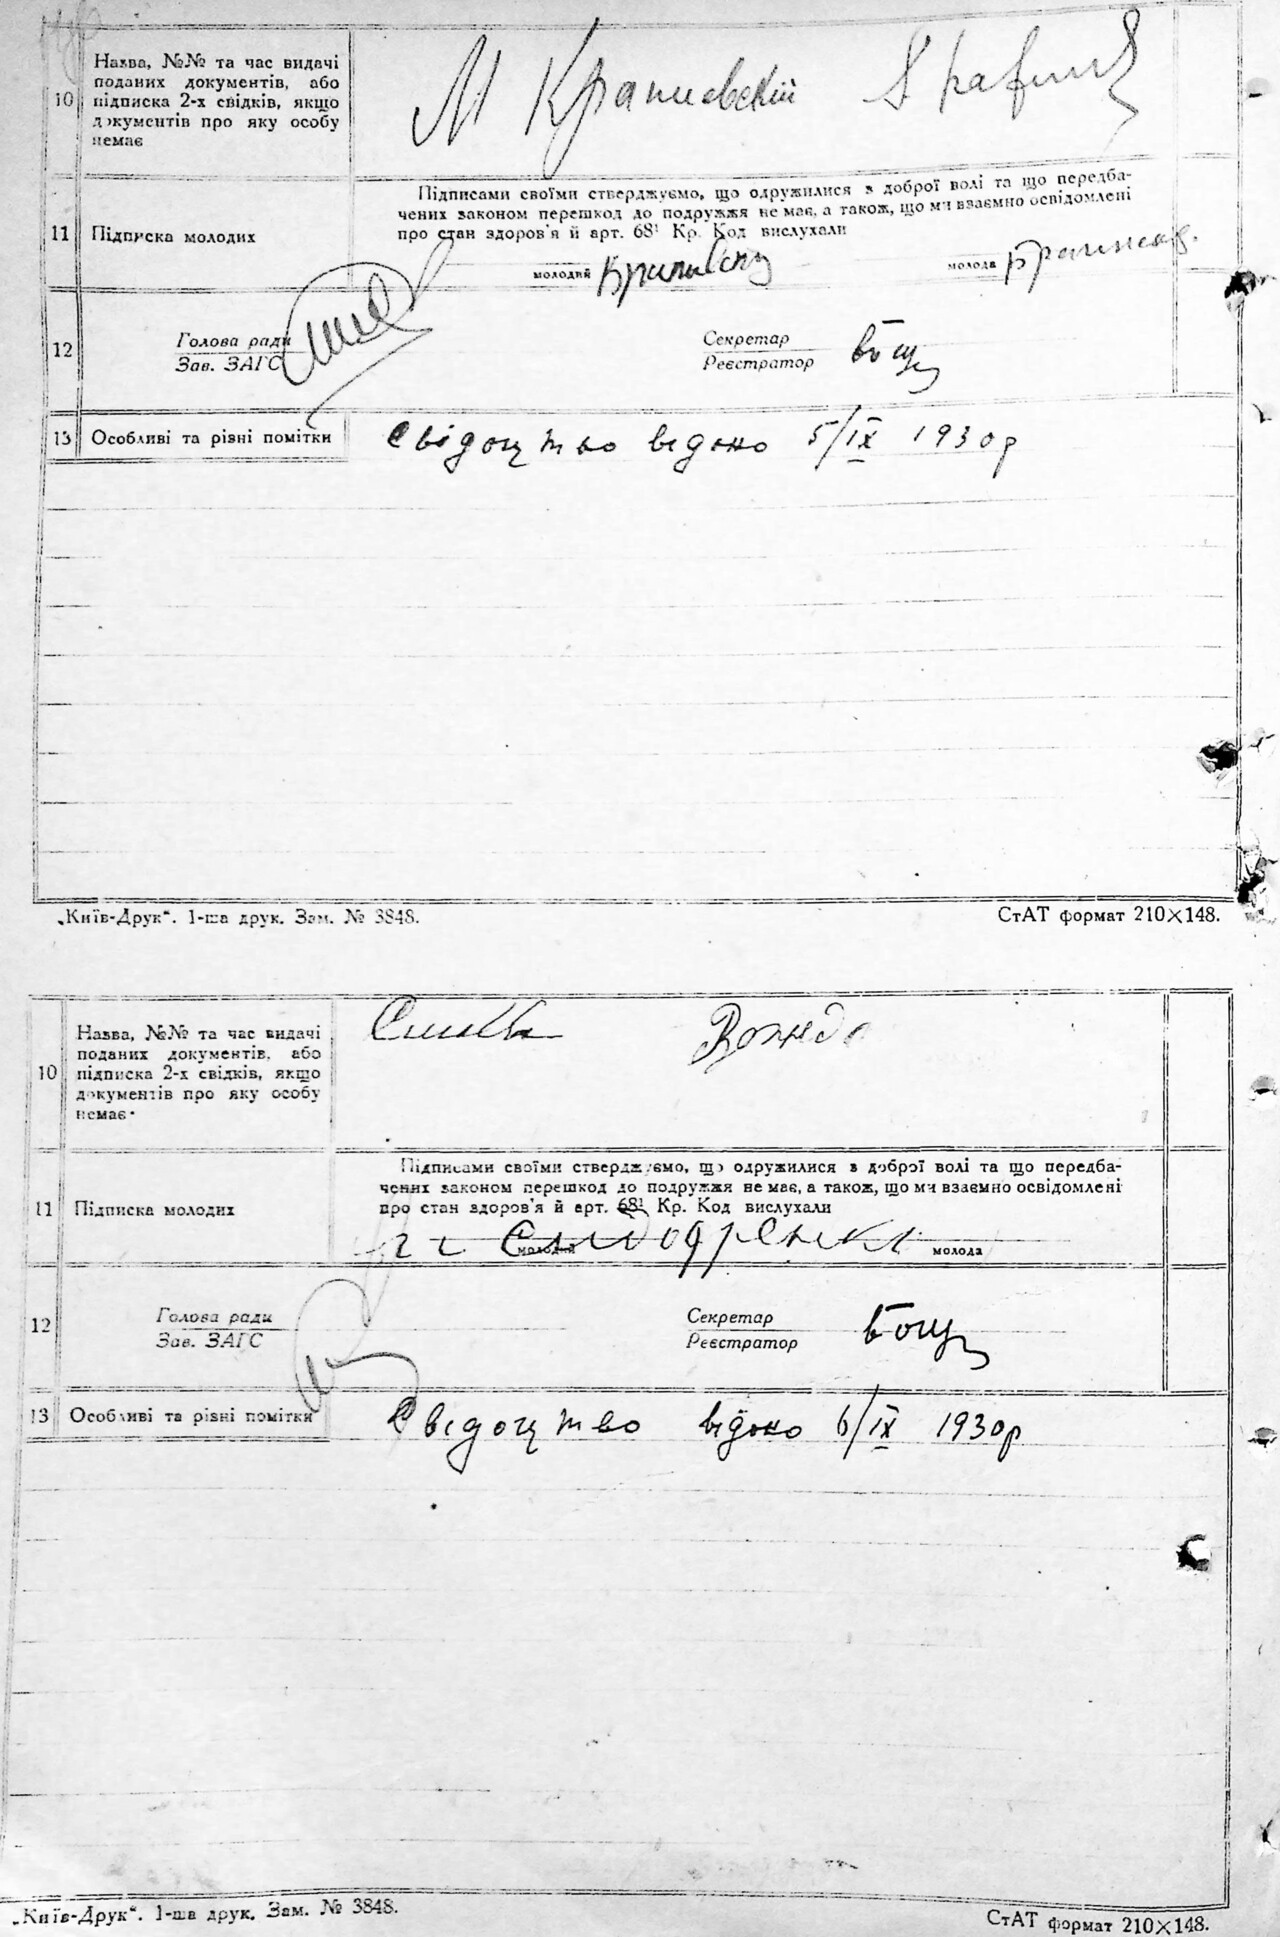 10
Назва, №№ та час видачі
поданих документів, або
підписка 2-х свідків, якщо
документів про яку особу
немає
М
Підписами своїми стверджуємо, що одружилися з доброї волі та що передба-
чених законом перешкод до подружжя не має, а також, що ми взаємно освідомлені
про стан здоров'я й арт. 68¹ Кр. Код вислухали
11 Підписка молодих
молодий
молода
12
Голова ради
Зав. ЗАГС
Секретар
Реєстратор
13 Особливі та різні помітки
Свідоцтво відоно 5/IX 1930р
„Київ-Друк“. 1-ша друк. Зам. № 3848.
СтАТ формат 210×148.
10
Назва, №№ та час видачі
поданих документів, або
підписка 2-х свідків, якщо
документів про яку особу
немає
Підписами своїми стверджуємо, що одружилися з доброї волі та що передба-
чених законом перешкод до подружжя не має, а також, що ми взаємно освідомлені
про стан здоров'я й арт. 68¹ Кр. Код вислухали
11 Підписка молодих
молодий
молода
12
Голова ради
Зав. ЗАГС
Секретар
Реєстратор
13 Особливі та різні помітки
Свідоцтво відоно 6/IX 1930р
„Київ-Друк“. 1-ша друк. Зам. № 3848.
СтАТ формат 210×148.